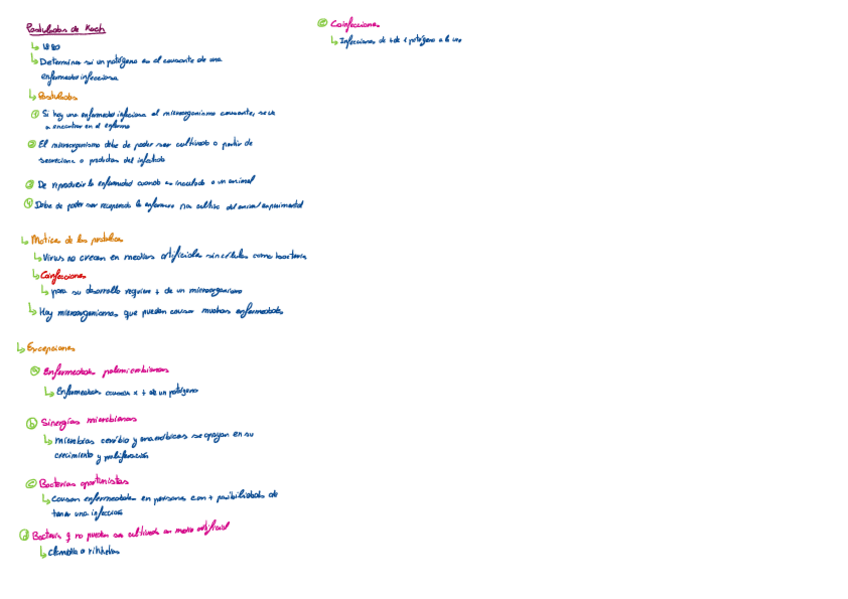 Postulados de Koch
↳ 1880
↳ Determina si un patógeno es el causante de una
enfermedad infecciosa
↳ Postulados
① Si hay una enfermedad infecciosa el microorganismo causante, se va
a encontrar en el enfermo
② El microorganismo debe de poder ser cultivado a partir de
secreciones o productos del infectado
③ De reproducir la enfermedad cuando es inoculado a un animal
④ Debe de poder ser recuperado la enfermero cultivo del animal experimental
↳ Motivos de los
↳ Virus no crecen en medios artificiales sin células como bacteria
↳ Coinfecciones
↳ para su desarrollo requiere + de un microorganismo
↳ Hay microorganismos que pueden causar muchas enfermedades
↳ Excepciones
ⓐ Enfermedades polimicrobianas
↳ Enfermedades causadas x + de un patógeno
ⓑ Sinergias microbianas
↳ microbios aerobio y anaeróbicos se apoyan en su
crecimiento y proliferación
ⓒ Bacterias oportunistas
↳ Causan enfermedades en personas con + posibilidades de
tener una infección
ⓓ Bacterias q no pueden ser cultivada en medio artificial
↳ Clamidia o rikketsia
ⓔ Coinfecciones
↳ Infecciones de + de 1 patógeno a la vez